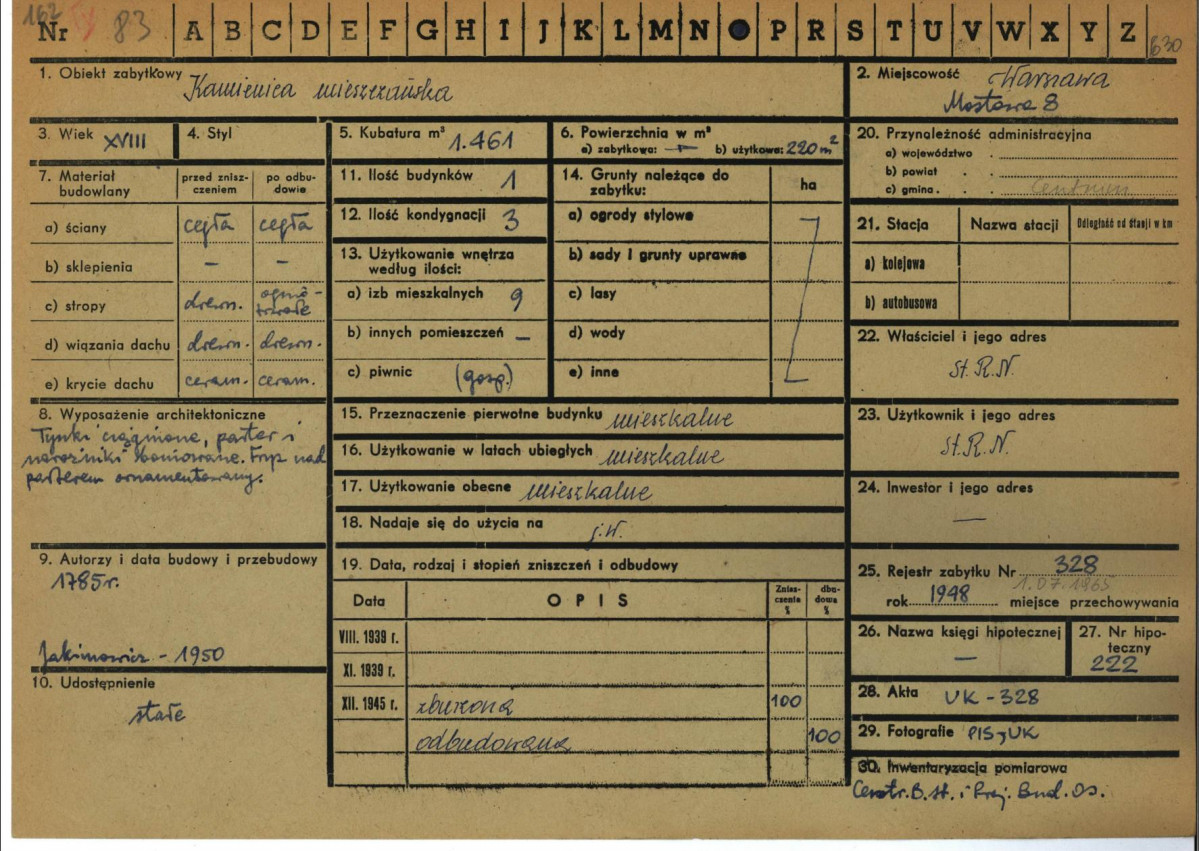 162
Nr 83 A B C D E F G H I J K L M N P R S T U V W X Y Z 630
1. Obiekt zabytkowy Kamienica mieszczańska
2. Miejscowość Warszawa
Mostowa 8
3. Wiek XVIII
4. Styl
5. Kubatura m³ 1.461
6. Powierzchnia w m²
a) zabytkowa: — b) użytkowa: 220 m²
7. Materiał budowlany
przed zniszczeniem
po odbudowie
a) ściany cegła cegła
b) sklepienia – –
c) stropy drewn. ogniotrwałe
d) wiązania dachu drewn. drewn.
e) krycie dachu ceram. ceram.
8. Wyposażenie architektoniczne
Tynki ciągnione, parter i
narożniki boniowane. Fryz nad
parterem ornamentowany.
9. Autorzy i data budowy i przebudowy
1785 r.
Jakimowicz - 1950
10. Udostępnienie
stałe
11. Ilość budynków 1
12. Ilość kondygnacji 3
13. Użytkowanie wnętrza
według ilości:
a) izb mieszkalnych 9
b) innych pomieszczeń –
c) piwnic (gosp.)
14. Grunty należące do
zabytku:
ha
a) ogrody stylowe
b) sady i grunty uprawne
c) lasy
d) wody
e) inne
15. Przeznaczenie pierwotne budynku mieszkalne
16. Użytkowanie w latach ubiegłych mieszkalne
17. Użytkowanie obecne mieszkalne
18. Nadaje się do użycia na j.w.
19. Data, rodzaj i stopień zniszczeń i odbudowy
Data OPIS Zniszczenia % dbudowa %
VIII. 1939 r.
XI. 1939 r.
XII. 1945 r. zburzona 100
odbudowana 100
20. Przynależność administracyjna
a) województwo
b) powiat
c) gmina Centrum
21. Stacja Nazwa stacji Odległość od stacji w km
a) kolejowa
b) autobusowa
22. Właściciel i jego adres
St. R. N.
23. Użytkownik i jego adres
St. R. N.
24. Inwestor i jego adres
—
25. Rejestr zabytku Nr 328
1.07.1965
rok 1948 miejsce przechowywania
26. Nazwa księgi hipotecznej
–
27. Nr hipoteczny
222
28. Akta UK - 328
29. Fotografie PIS, UK
30. Inwentaryzacja pomiarowa
Centr. B. St. i Proj. Bud. Os.